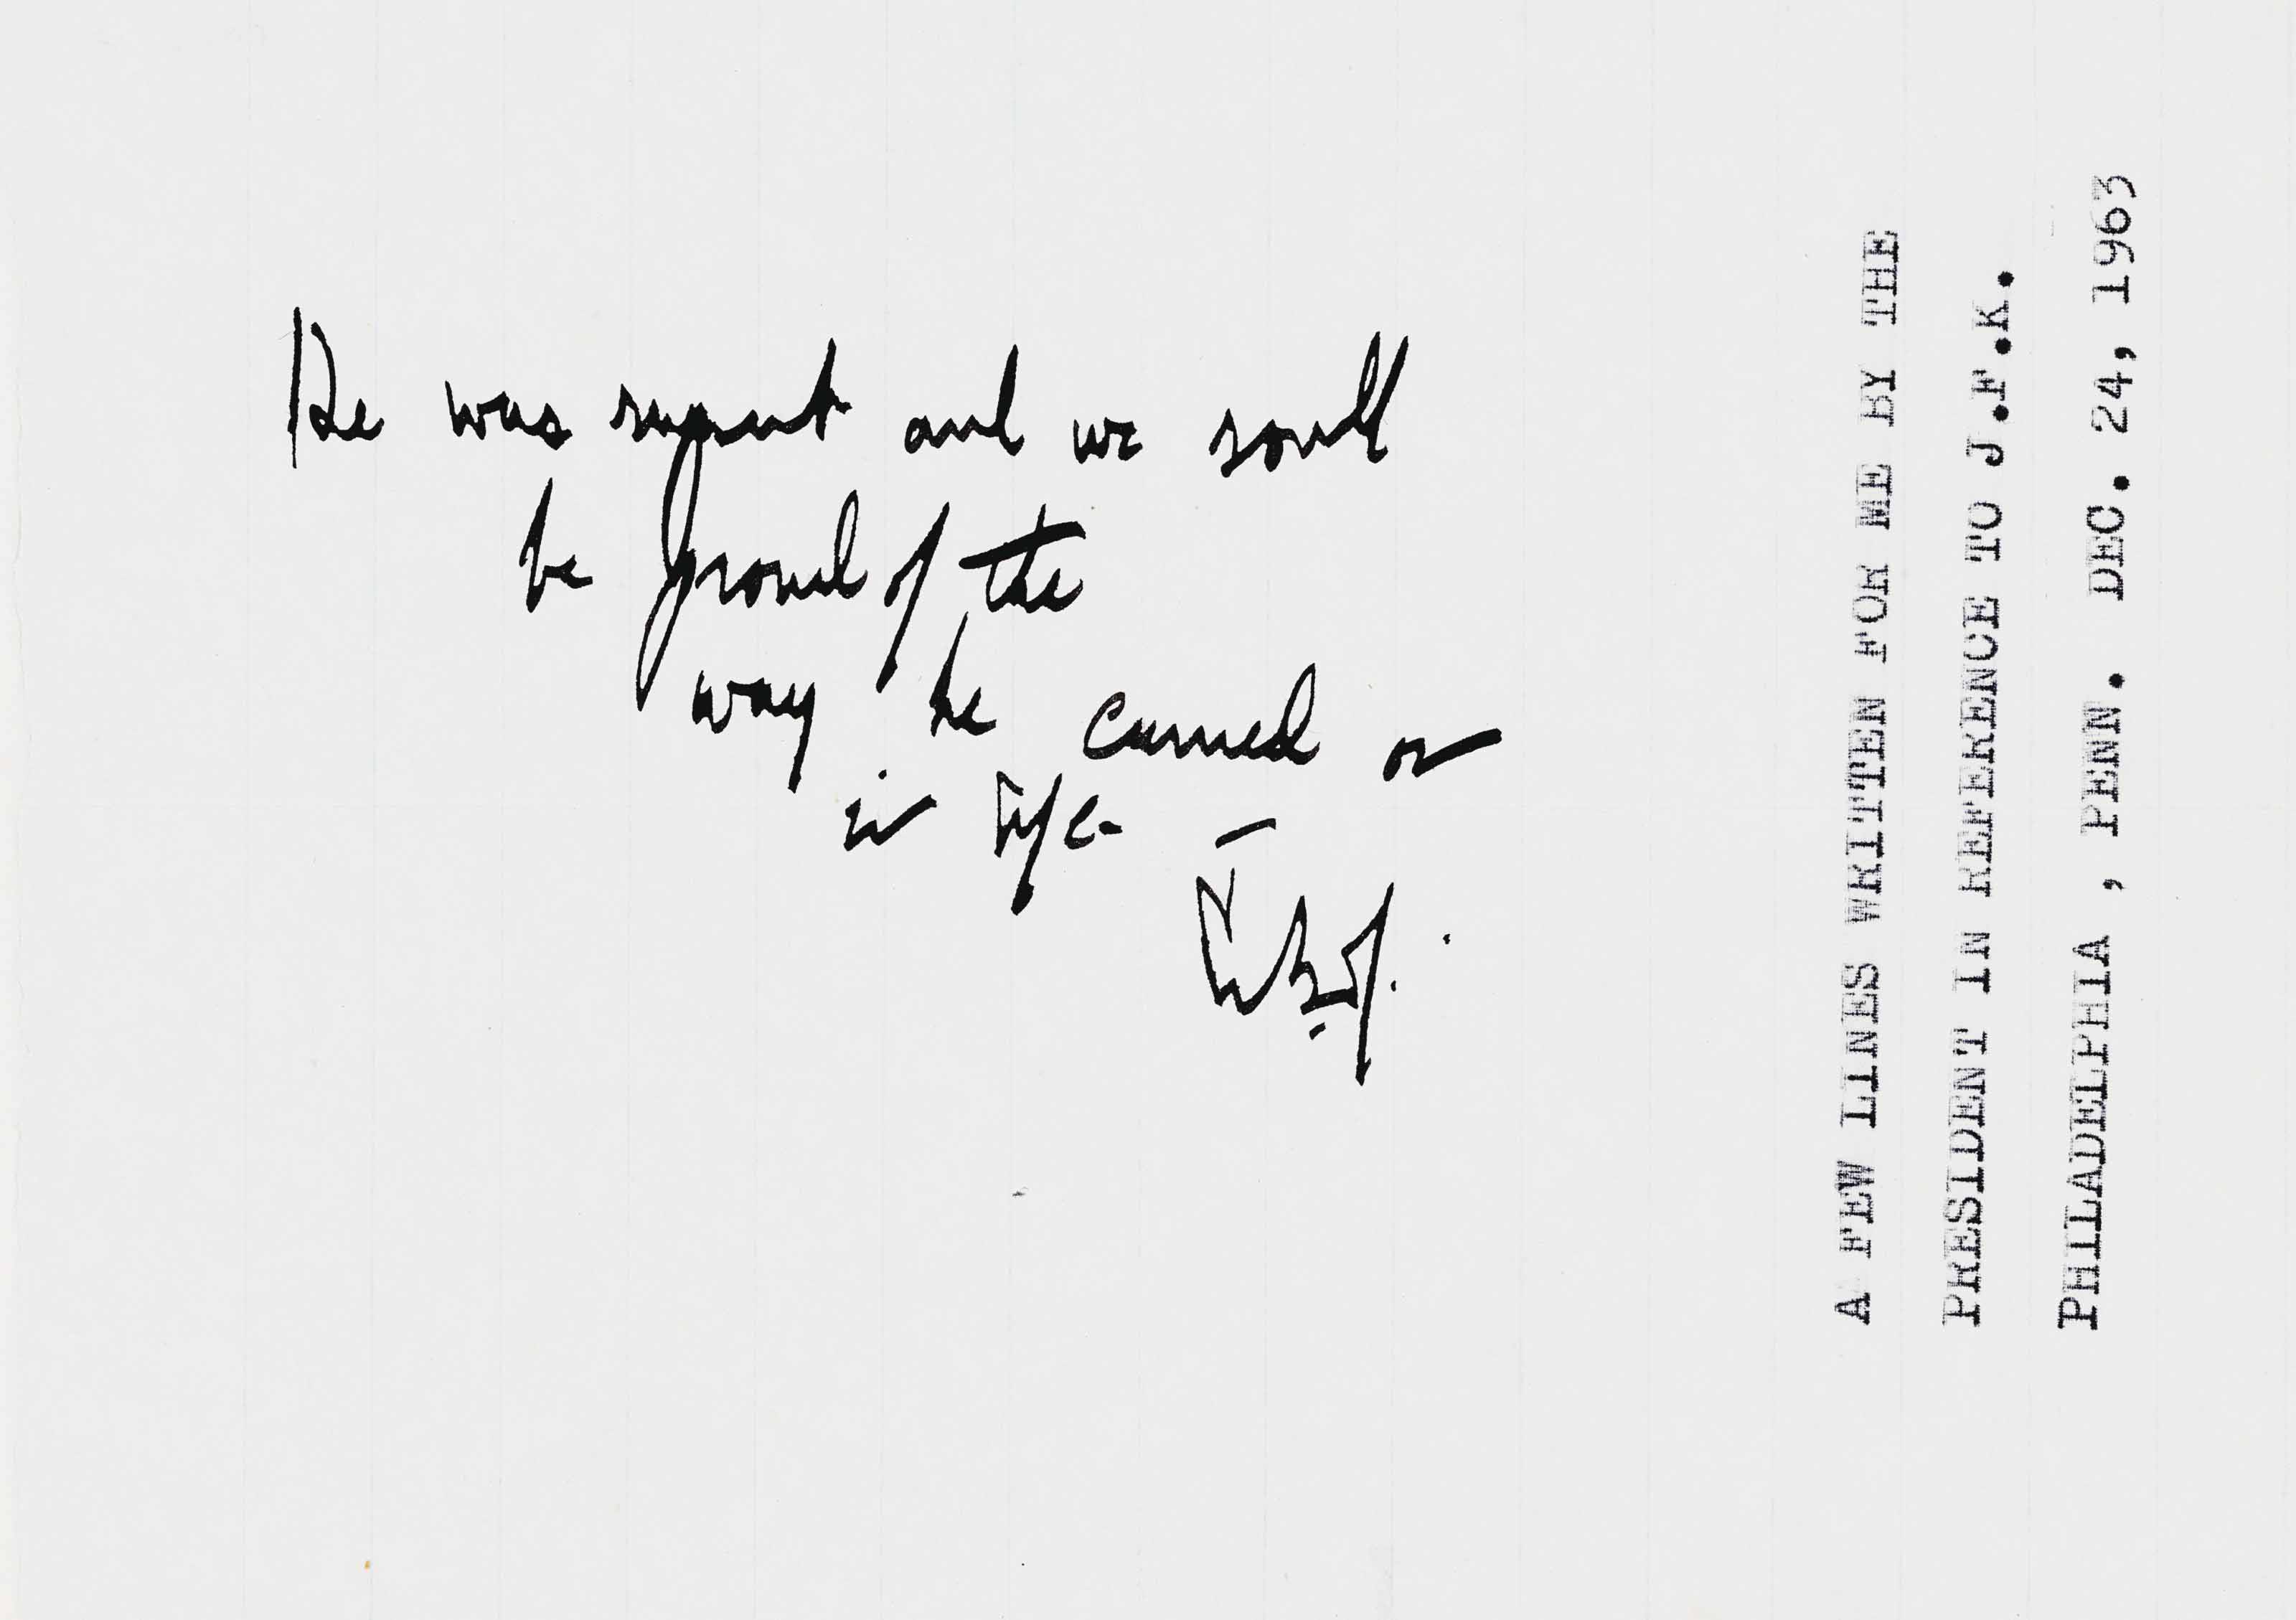 He was and we
be proud of the
way he carried on
in life -
A FEW LINES WRITTEN FOR ME BY THE
PRESIDENT IN REFERENCE TO J.F.K.
PHILADELPHIA , PENN. DEC. 24, 1963